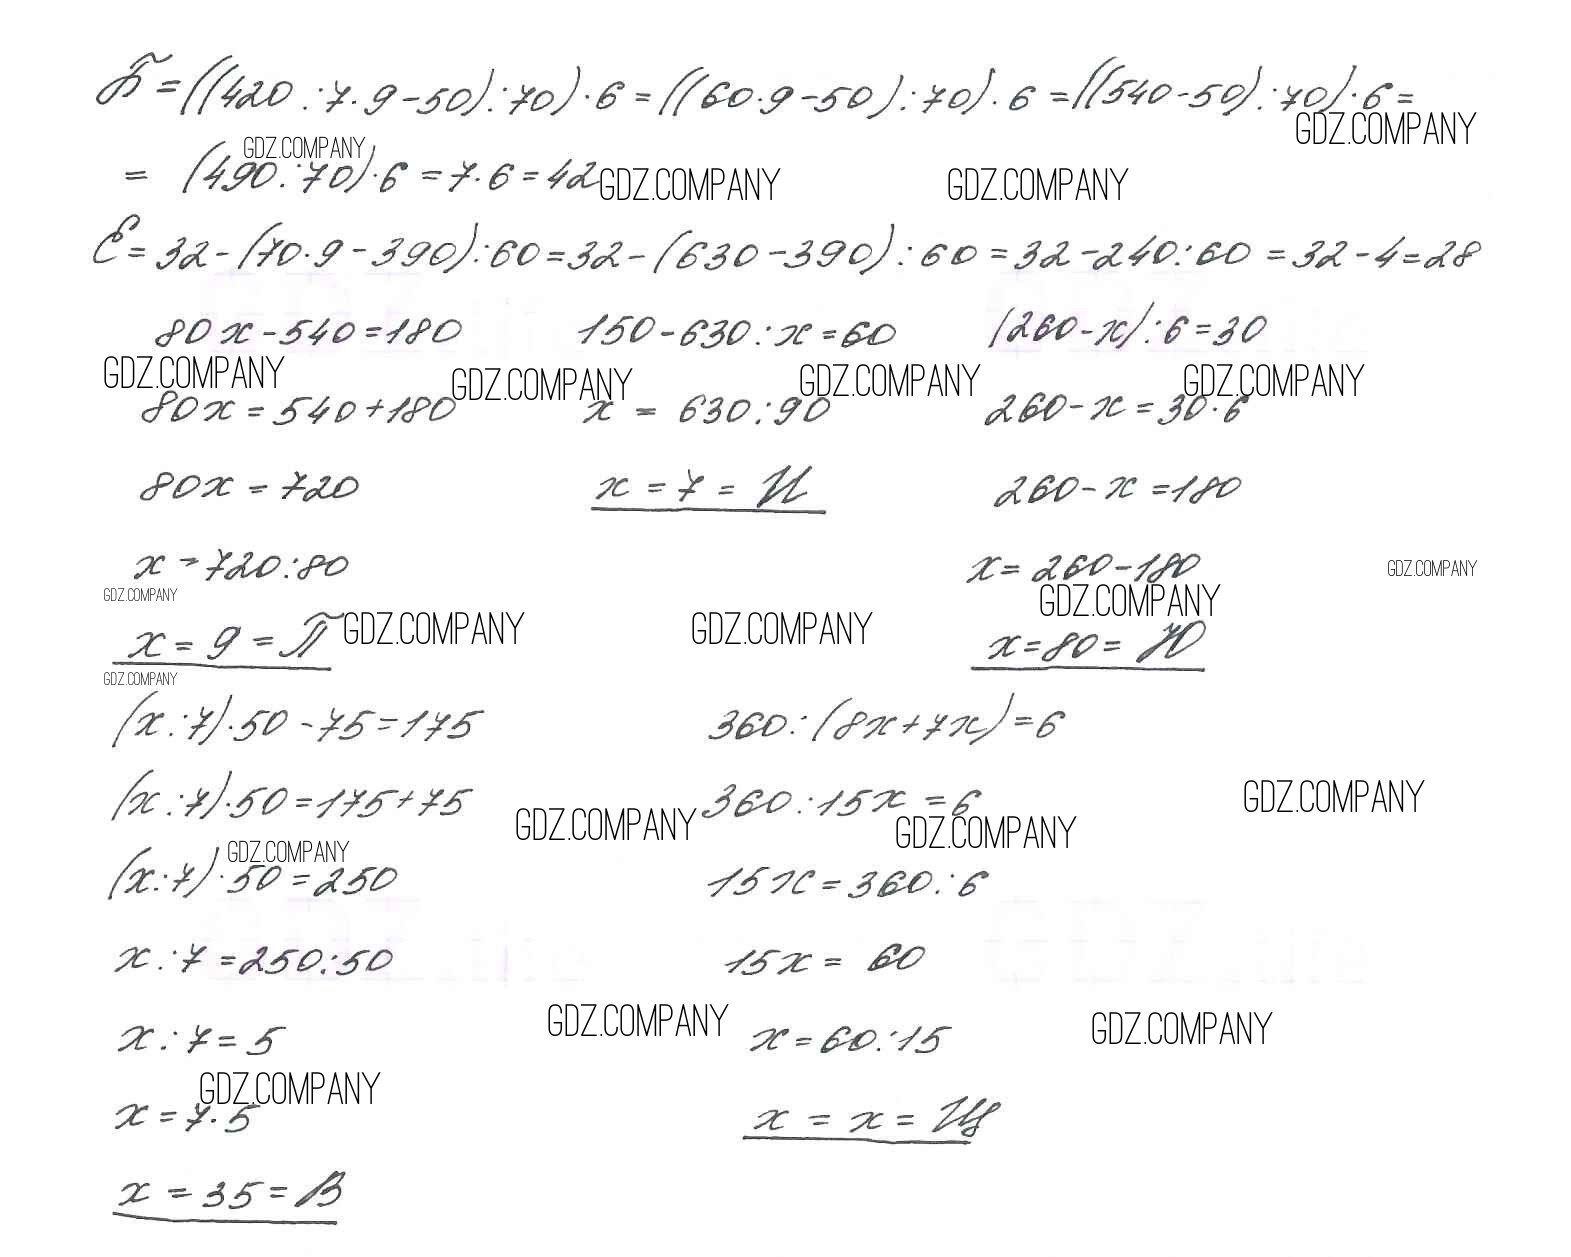 Б = ((420 : 7 · 9 - 50) : 70) · 6 = ((60 · 9 - 50) : 70) · 6 = ((540 - 50) : 70) · 6 =
GDZ.COMPANY
GDZ.COMPANY
= (490 : 70) · 6 = 7 · 6 = 42
GDZ.COMPANY GDZ.COMPANY
Е = 32 - (70 · 9 - 390) : 60 = 32 - (630 - 390) : 60 = 32 - 240 : 60 = 32 - 4 = 28
80x - 540 = 180 150 - 630 : x = 60 (260 - x) : 6 = 30
GDZ.COMPANY GDZ.COMPANY GDZ.COMPANY GDZ.COMPANY
80x = 540 + 180 x = 630 : 90 260 - x = 30 · 6
80x = 720 x = 7 = И 260 - x = 180
x = 720 : 80 x = 260 - 180
GDZ.COMPANY
GDZ.COMPANY GDZ.COMPANY
x = 9 = П GDZ.COMPANY GDZ.COMPANY x = 80 = Ю
GDZ.COMPANY
(x : 7) · 50 - 75 = 175 360 : (8x + 7x) = 6
(x : 7) · 50 = 175 + 75 360 : 15x = 6
GDZ.COMPANY GDZ.COMPANY GDZ.COMPANY
GDZ.COMPANY
(x : 7) · 50 = 250 15x = 360 : 6
x : 7 = 250 : 50 15x = 60
GDZ.COMPANY GDZ.COMPANY
x : 7 = 5 x = 60 : 15
GDZ.COMPANY
x = 7 · 5 x = x = Щ
x = 35 = В